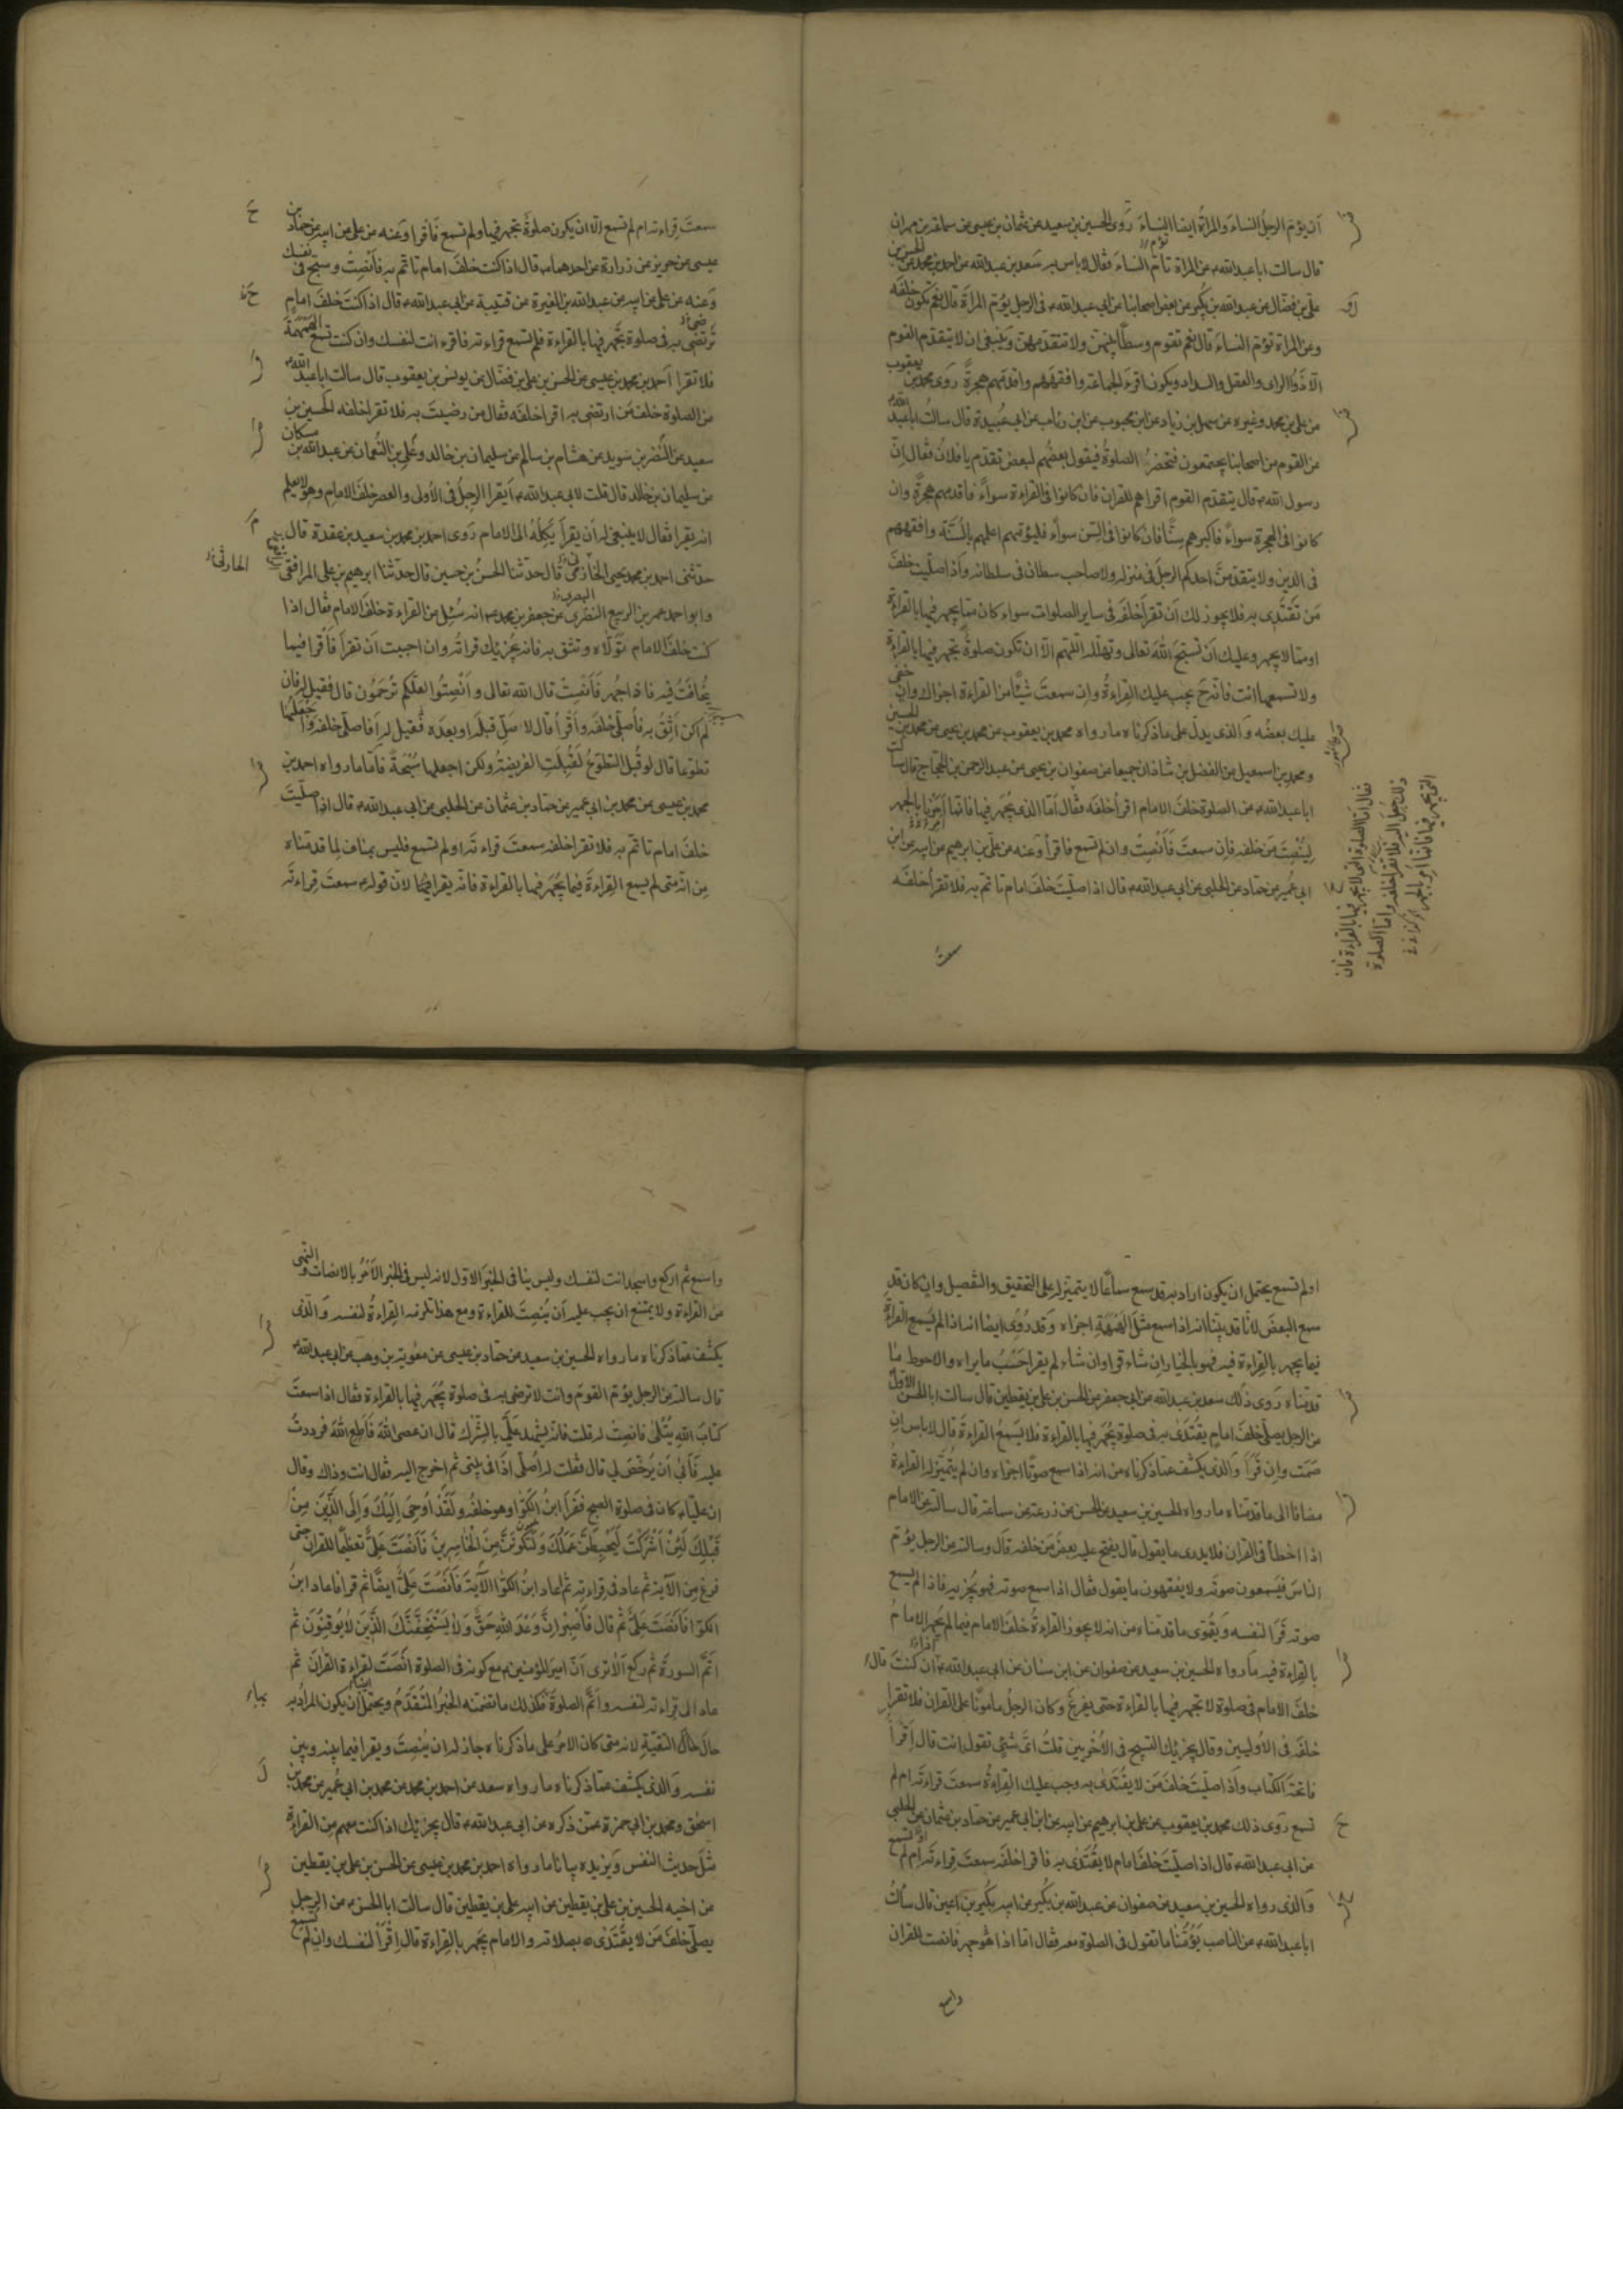 أن يؤم الرجل النساء والمراة ايضا النساء روى الحسين بن سعيد عن عثمان بن عيسى عن سماعة بن مهران
قال سالت ابا عبد الله ع عن المراة تؤم النساء فقال لا باس به سعد بن عبد الله عن احمد بن محمد عن الحسن بن
علي بن فضال عن عبد الله بن بكير عن بعض اصحابنا عن ابي عبد الله ع في الرجل يؤم المراة قال نعم تكون خلفه
وعن المراة تؤم النساء قال نعم تقوم وسطا بينهن ولا تتقدمهن وينبغي ان لا يتقدم القوم
الا ذوا الراى والعقل والسداد ويكون اقرء الجماعة وافقههم واقدمهم هجرة روى محمد بن يعقوب
عن علي بن محمد وغيره عن سهل بن زياد عن ابن محبوب عن ابن رئاب عن ابي عبيدة قال سالت ابا عبد الله ع
عن القوم من اصحابنا يجتمعون فتحضر الصلوة فيقول بعضهم لبعض تقدم يا فلان فقال ان
رسول الله ص قال يتقدم القوم اقراهم للقران فان كانوا في القراءة سواء فاقدمهم هجرة وان
كانوا في الهجرة سواء فاكبرهم سنا فان كانوا في السن سواء فليؤمهم اعلمهم بالسنة وافقههم
في الدين ولا يتقدمن احدكم الرجل في منزله ولا صاحب سلطان في سلطانه واذا صليت خلف
من تقتدى به فلا يجوز لك ان تقرأ خلفه في ساير الصلوات سواء كان مما يجهر فيها بالقراءة
او مما لا يجهر وعليك ان تسبح الله تعالى وتهلله اللهم الا ان تكون صلوة تجهر فيها بالقراءة
ولا تسمعها انت فانه ح يجب عليك القراءة وان سمعت شيئا من القراءة اجزاك وان خفي
عليك بعضه والذى يدل على ما ذكرناه ما رواه محمد بن يعقوب عن محمد بن يحيى عن محمد بن الحسين
ومحمد بن اسمعيل عن الفضل بن شاذان جميعا عن صفوان بن يحيى عن عبد الرحمن بن الحجاج قال سالت
ابا عبد الله ع عن الصلوة خلف الامام اقرأ خلفه فقال اما الذى يجهر فيها فانما امرنا بالجهر
لينصت من خلفه فان سمعت فانصت وان لم تسمع فاقرأ وعنه عن علي بن ابرهيم عن ابيه عن ابن
ابي عمير عن حماد عن الحلبي عن ابي عبد الله ع قال اذا صليت خلف امام تاتم به فلا تقرأ خلفه
سمعت
فقال اما الصلوة التي لا يجهر فيها بالقراءة فان
ذلك جعل اليه فلا تقرأ خلفه واما الصلوة
التي يجهر فيها فانما امر بالجهر
سمعت قراءته ام لم تسمع الا ان يكون صلوة تجهر فيها ولم تسمع فاقرا وعنه عن علي عن ابيه عن حماد بن
عيسى عن حريز عن زرارة عن احدهما ع قال اذا كنت خلف امام تاتم به فانصت وسبح في نفسك
وعنه عن علي عن ابيه عن عبد الله بن المغيرة عن قتيبة عن ابي عبد الله ع قال اذا كنت خلف امام
ترتضى به في صلوة يجهر فيها بالقراءة فلم تسمع قراءته فاقرء انت لنفسك وان كنت تسمع الهمهمة
فلا تقرا احمد بن محمد بن عيسى عن الحسن بن علي بن فضال عن يونس بن يعقوب قال سالت ابا عبد الله ع
عن الصلوة خلف من ارتضى به اقرا خلفه فقال من رضيت به فلا تقرا خلفه الحسين بن
سعيد عن النضر بن سويد عن هشام بن سالم عن سليمان بن خالد وعلي بن النعمان عن عبد الله بن مسكان
عن سليمان بن خالد قال قلت لابي عبد الله ع أيقرا الرجل في الاولى والعصر خلف الامام وهو لا يعلم
انه يقرا فقال لا ينبغي له ان يقرأ يكله الى الامام روى احمد بن محمد بن سعيد بن عقدة قال
حدثني احمد بن محمد بن يحيى الخازمي قال حدثنا الحسن بن حسين قال حدثنا ابرهيم بن علي المرافقي
الحارثي
وابو احمد عمر بن الربيع النضري عن جعفر بن محمد ع انه سئل عن القراءة خلف الامام فقال اذا
كنت خلف الامام تولاه وتثق به فانه يجزئك قراءته وان احببت أن تقرأ فاقرا فيما
يخافت فيه فاذا جهر فانصت قال الله تعالى وانصتوا لعلكم ترحمون قال فقيل له فان
لم اكن اثق به فاصلي خلفه واقرأ قال لا صل قبله او بعده فقيل له افاصلي خلفه واجعلها
تطوعا قال لو قبل التطوع لقبلت الفريضة ولكن اجعلها سبحة فاما ما رواه احمد بن
محمد بن عيسى عن محمد بن ابي عمير عن حماد بن عثمان عن الحلبي عن ابي عبد الله ع قال اذا صليت
خلف امام تاتم به فلا تقرا خلفه سمعت قراءته او لم تسمع فليس بمناف لما قدمناه
من انه متى لم يسمع القراءة فيما يجهر فيها بالقراءة فانه يقرا فيها لان قوله ع سمعت قراءته
او لم تسمع يحتمل ان يكون اراد به قد سمع سماعا لا يتميز له على التحقيق والتفصيل وان كان قد
سمع البعض لانا قد بينا انه اذا سمع مثل الهمهمة اجزاه وقد روى ايضا انه اذا لم يسمع القراءة
فيما يجهر بالقراءة فيه فهو بالخيار ان شاء قرا وان شاء لم يقرا حسب ما يراه والاحوط ما
قدمناه روى ذلك سعد بن عبد الله عن ابي جعفر عن الحسن بن علي بن يقطين قال سالت ابا الحسن الاول
عن الرجل يصلي خلف امام يقتدى به في صلوة يجهر فيها بالقراءة فلا يسمع القراءة قال لا باس ان
صمت وان قرأ والذى يكشف عما ذكرناه من انه اذا سمع صوتا اجزاه وان لم يتميز له القراءة
مضافا الى ما قدمناه ما رواه الحسين بن سعيد عن الحسن عن زرعة عن سماعة قال سالته عن الامام
اذا اخطأ في القران فلا يدرى ما يقول قال يفتح عليه بعض من خلفه قال وسالته عن الرجل يؤم
الناس فيسمعون صوته ولا يفقهون ما يقول فقال اذا سمع صوته فهو يجزيه فاذا لم يسمع
صوته قرا لنفسه ويقوى ما قدمناه من انه لا يجوز القراءة خلف الامام فيما لم يجهر الامام
بالقراءة فيه ما رواه الحسين بن سعيد عن صفوان عن ابن سنان عن ابي عبد الله ع ان كنت قال
خلف الامام في صلوة لا تجهر فيها بالقراءة حتى يفرغ وكان الرجل مامونا على القران فلا تقرا
خلفه في الاوليين وقال يجزئك التسبيح في الاخريين قلت اى شئ تقول انت قال اقرأ
فاتحة الكتاب واذا صليت خلف من لا يقتدى به وجب عليك القراءة سمعت قراءته ام لم
تسمع روى ذلك محمد بن يعقوب عن علي بن ابرهيم عن ابيه عن ابن ابي عمير عن حماد بن عثمان عن الحلبي
عن ابي عبد الله ع قال اذا صليت خلف امام لا يقتدى به فاقرا خلفه سمعت قراءته ام لم تسمع
والذى رواه الحسين بن سعيد عن صفوان عن عبد الله بن بكير عن ابيه بكير بن اعين قال سألت
ابا عبد الله ع عن الناصب يؤمنا ما تقول في الصلوة معه فقال اما اذا هو جهر فانصت للقران
واسمع
واسمع ثم اركع واسجد انت لنفسك وليس ينافى الخبر الاول لانه ليس في الخبر الامر بالانصات والنهى
عن القراءة ولا يمتنع ان يجب عليه أن ينصت للقراءة ومع هذا تلزمه القراءة لنفسه والذى
يكشف عما ذكرناه ما رواه الحسين بن سعيد عن حماد بن عيسى عن معوية بن وهب عن ابي عبد الله ع
قال سالته عن الرجل يؤم القوم وانت لا ترضى به في صلوة يجهر فيها بالقراءة فقال اذا سمعت
كتاب الله يتلى فانصت له قلت فانه يشهد علي بالشرك قال ان عصى الله فاطع الله فرددت
عليه فأبى أن يرخص لي قال فقلت له اصلي اذا في بيتي ثم اخرج اليه فقال انت وذاك وقال
ان عليا ع كان في صلوة الصبح فقرأ ابن الكوا وهو خلفه ولقد أوحى إليك وإلى الذين من
قبلك لئن اشركت ليحبطن عملك ولتكونن من الخاسرين فأنصت علي تعظيما للقران حتى
فرغ من الآية ثم عاد في قراءته ثم اعاد ابن الكوا الآية فأنصت علي ايضا ثم قرا فاعاد ابن
الكوا فانصت علي ثم قال فاصبر إن وعد الله حق ولا يستخفنك الذين لا يوقنون ثم
اتم السورة ثم ركع الا ترى أن امير المؤمنين ع مع كونه في الصلوة انصت لقراءة القران ثم
عاد الى قراءته لنفسه واتم الصلوة فكذلك ما تضمنه الخبر المتقدم ويحتمل ايضا أن يكون المراد به
حال التقية لانه متى كان الامر على ما ذكرناه جاز له ان ينصت ويقرا فيما بينه وبين
نفسه والذى يكشف عما ذكرناه ما رواه سعد عن احمد بن محمد عن محمد بن ابي عمير عن محمد بن
اسحق ومحمد بن ابي حمزة عمن ذكره عن ابي عبد الله ع قال يجزئك اذا كنت معهم من القراءة
مثل حديث النفس ويزيده بيانا ما رواه احمد بن محمد بن عيسى عن الحسن بن علي بن يقطين
عن اخيه الحسين بن علي بن يقطين عن ابيه علي بن يقطين قال سالت ابا الحسن ع عن الرجل
يصلي خلف من لا يقتدى بصلاته والامام يجهر بالقراءة قال اقرأ لنفسك وان لم تسمع